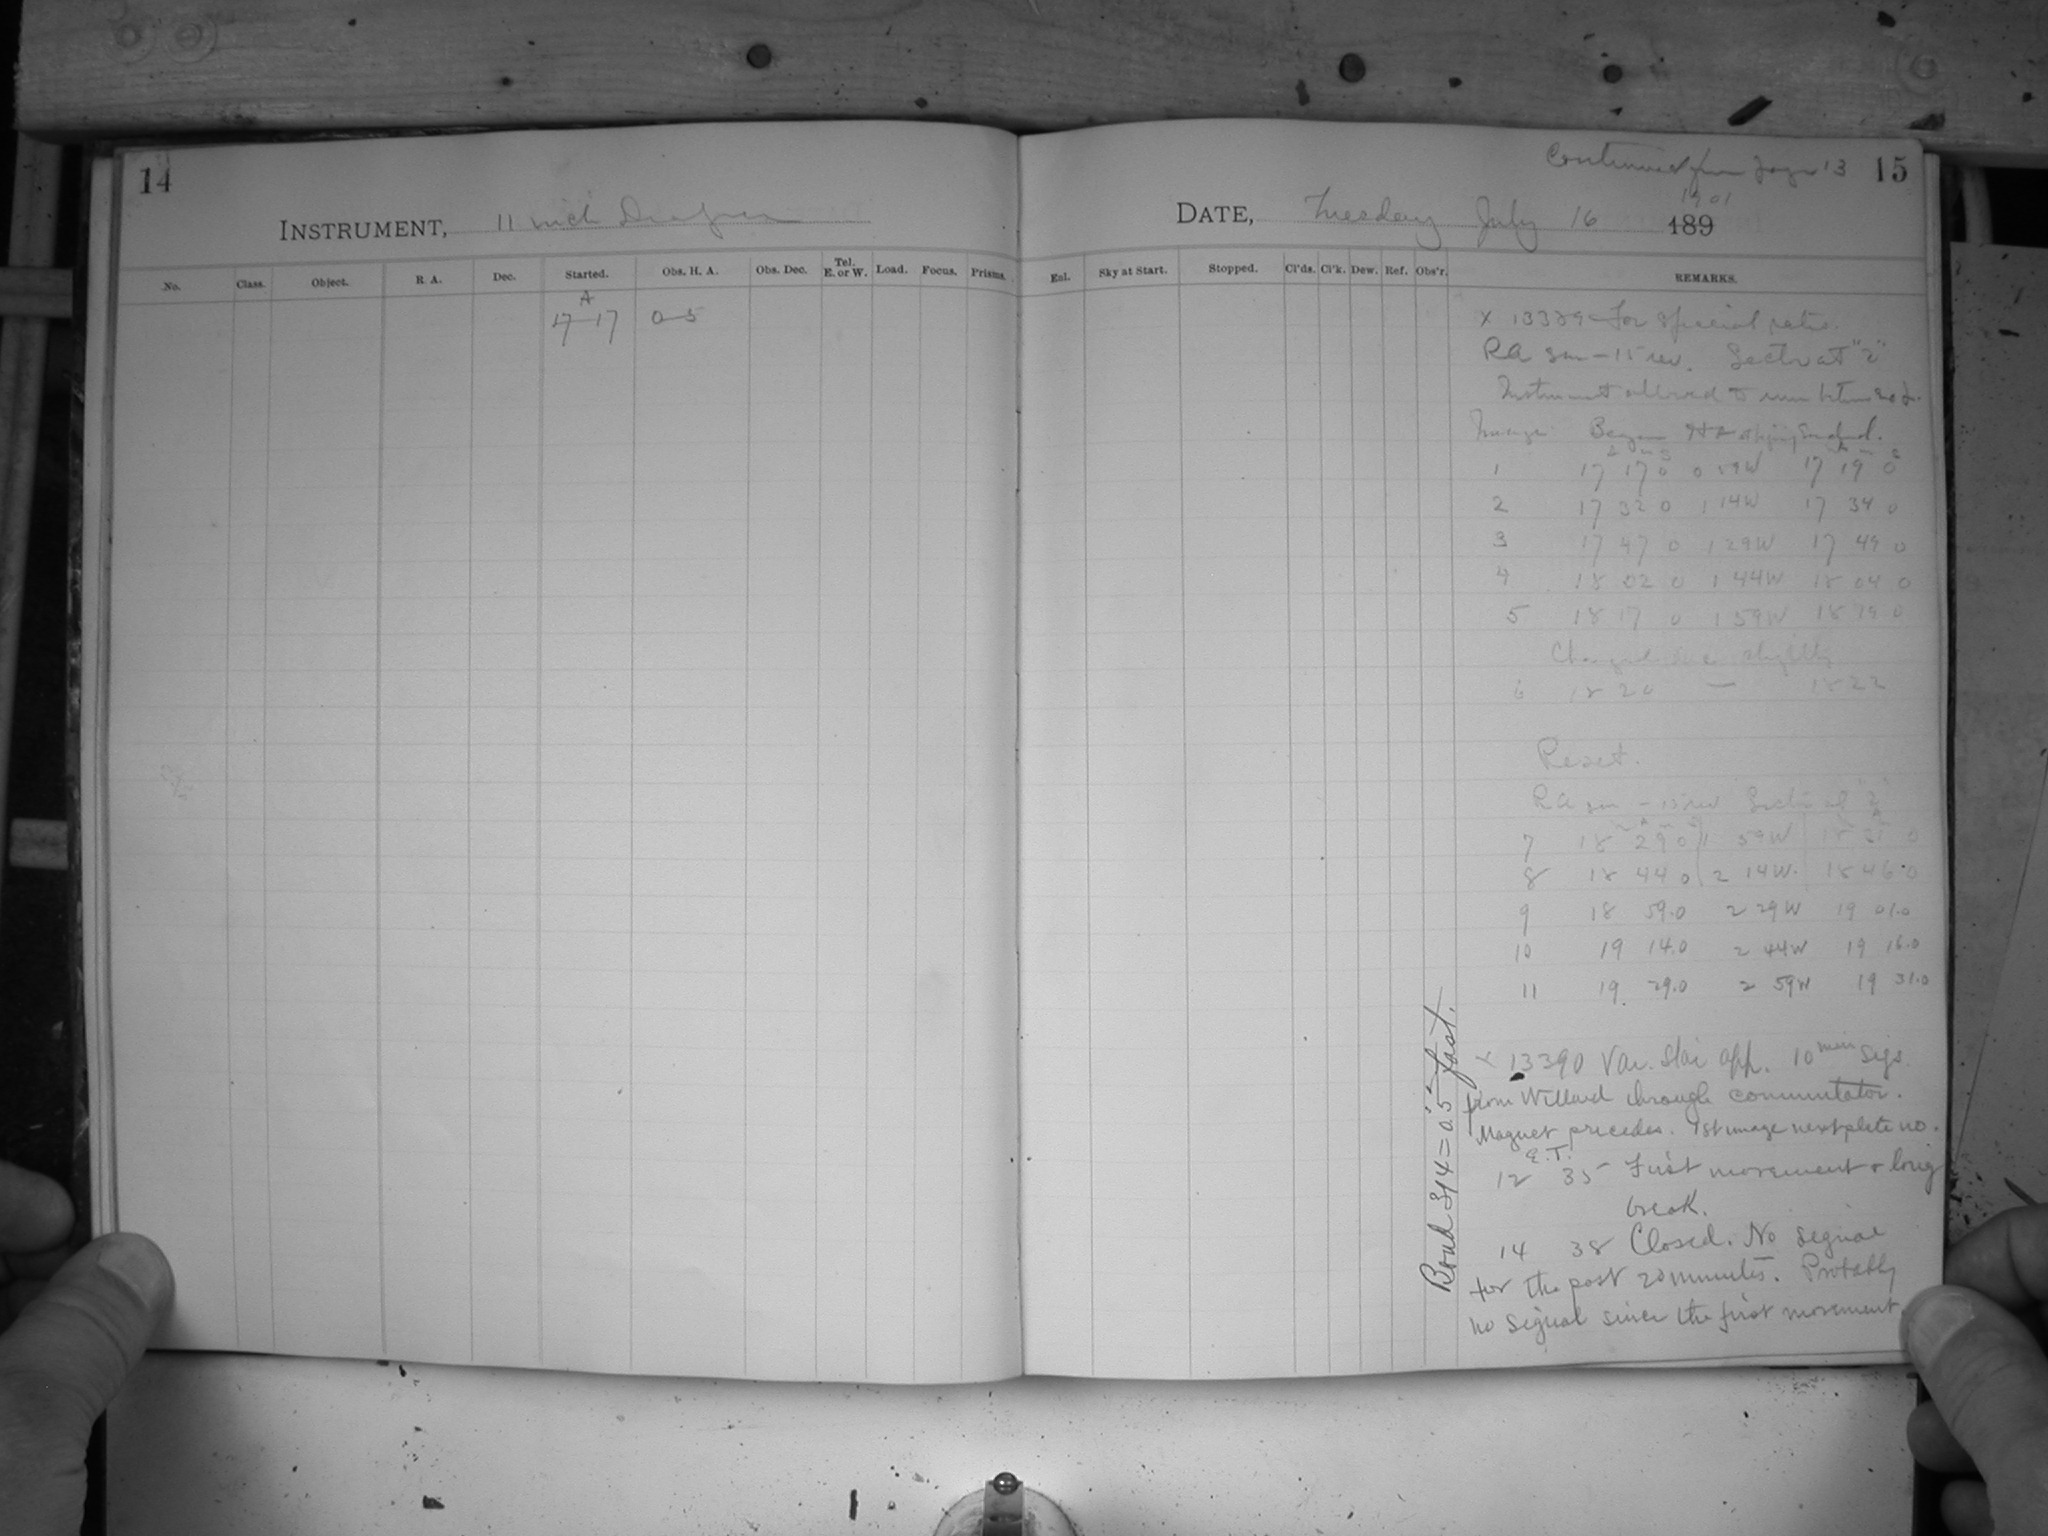 14
INSTRUMENT, 11 inch Draper
No. Class. Object. R. A. Dec. Started. Obs. H. A. Obs. Dec. Tel. E. or W. Load. Focus. Prisms.
A
17 17 0 5
Continued from page 13 15
DATE, Tuesday July 16 1901 189
Exl. Sky at Start. Stopped. Cl'ds. Cl'k. Dew. Ref. Obs'r. REMARKS.
X 13389 For special rates.
RA sm - 15 rev. Sector at "2"
Instrument allowed to run between
Image Began HA Ended.
1 17 17 0 0 59W 17 19 0
2 17 32 0 1 14W 17 34 0
3 17 47 0 1 29W 17 49 0
4 18 02 0 1 44W 18 04 0
5 18 17 0 1 59W 18 19 0
Changed Dec slightly
6 18 20 — 18 22
Reset.
RA sm - 15 rev Sector at "2"
7 18 29 0 1 59W 18 31 0
8 18 44 0 2 14W. 18 46.0
9 18 59.0 2 29W 19 01.0
10 19 14.0 2 44W 19 16.0
11 19 29.0 2 59W 19 31.0
X 13390 Var. Star app. 10 min Sigs.
from Willard through commutator.
Magnet precedes. 1st image next plate no.
E.T.
12 35 First movement & long
break.
14 38 Closed. No signal
for the past 20 minutes. Probably
no signal since the first movement.
Bond 314 = 0.5 fast.